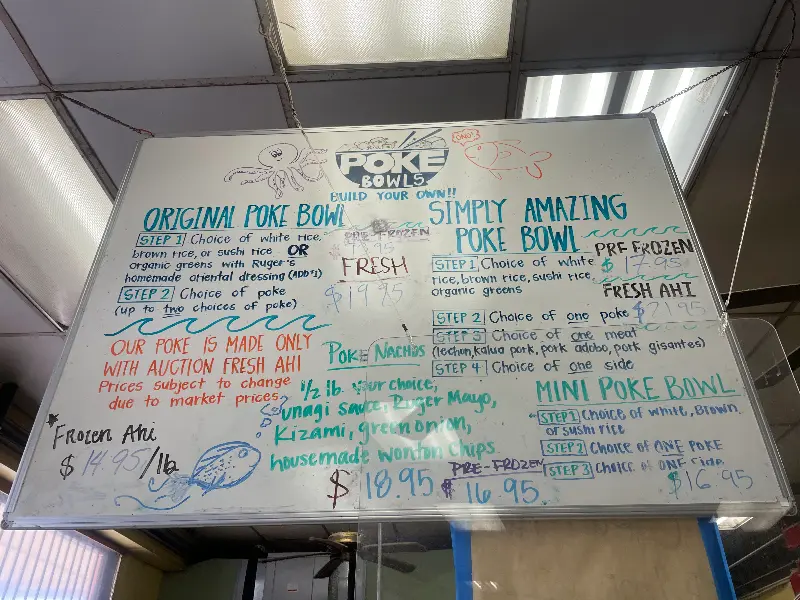 ONO!
POKE
BOWLS
BUILD YOUR OWN!!
ORIGINAL POKE BOWL
STEP 1 Choice of white rice,
brown rice, or sushi rice OR
organic greens with Ruger's
homemade oriental dressing (ADD $1)
STEP 2 Choice of poke
(up to two choices of poke)
PRE FROZEN
FRESH
$19.95
OUR POKE IS MADE ONLY
WITH AUCTION FRESH AHI
Prices subject to change
due to market prices.
Frozen Ahi
$14.95/lb
POKE NACHOS
1/2 lb. your choice,
unagi sauce, Ruger Mayo,
Kizami, green onion,
housemade wonton chips
$18.95
PRE-FROZEN
$16.95
SIMPLY AMAZING
POKE BOWL
PRE FROZEN
$17.95
FRESH AHI
$21.95
STEP 1 Choice of white
rice, brown rice, sushi rice,
organic greens
STEP 2 Choice of one poke
STEP 3 Choice of one meat
(lechon, kalua pork, pork adobo, pork gisantes)
STEP 4 Choice of one side
MINI POKE BOWL
STEP 1 Choice of white, Brown
or sushi rice
STEP 2 Choice of ONE POKE
STEP 3 Choice of ONE Side
$16.95